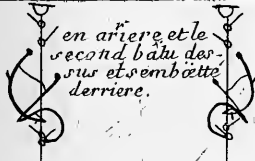 en ariere, et le
second bâtu des-
sus et semböetté
derriere.